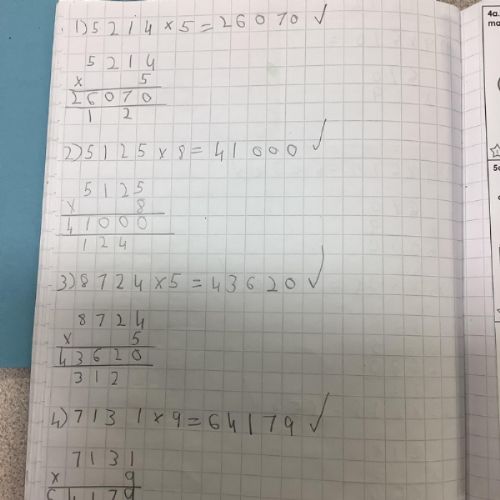 1) 5214 × 5 = 26070 ✓
5214
× 5
26070
1 2
2) 5125 × 8 = 41000 ✓
5125
× 8
41000
124
3) 8724 × 5 = 43620 ✓
8724
× 5
43620
312
4) 7131 × 9 = 64179 ✓
7131
× 9
64179
4a.